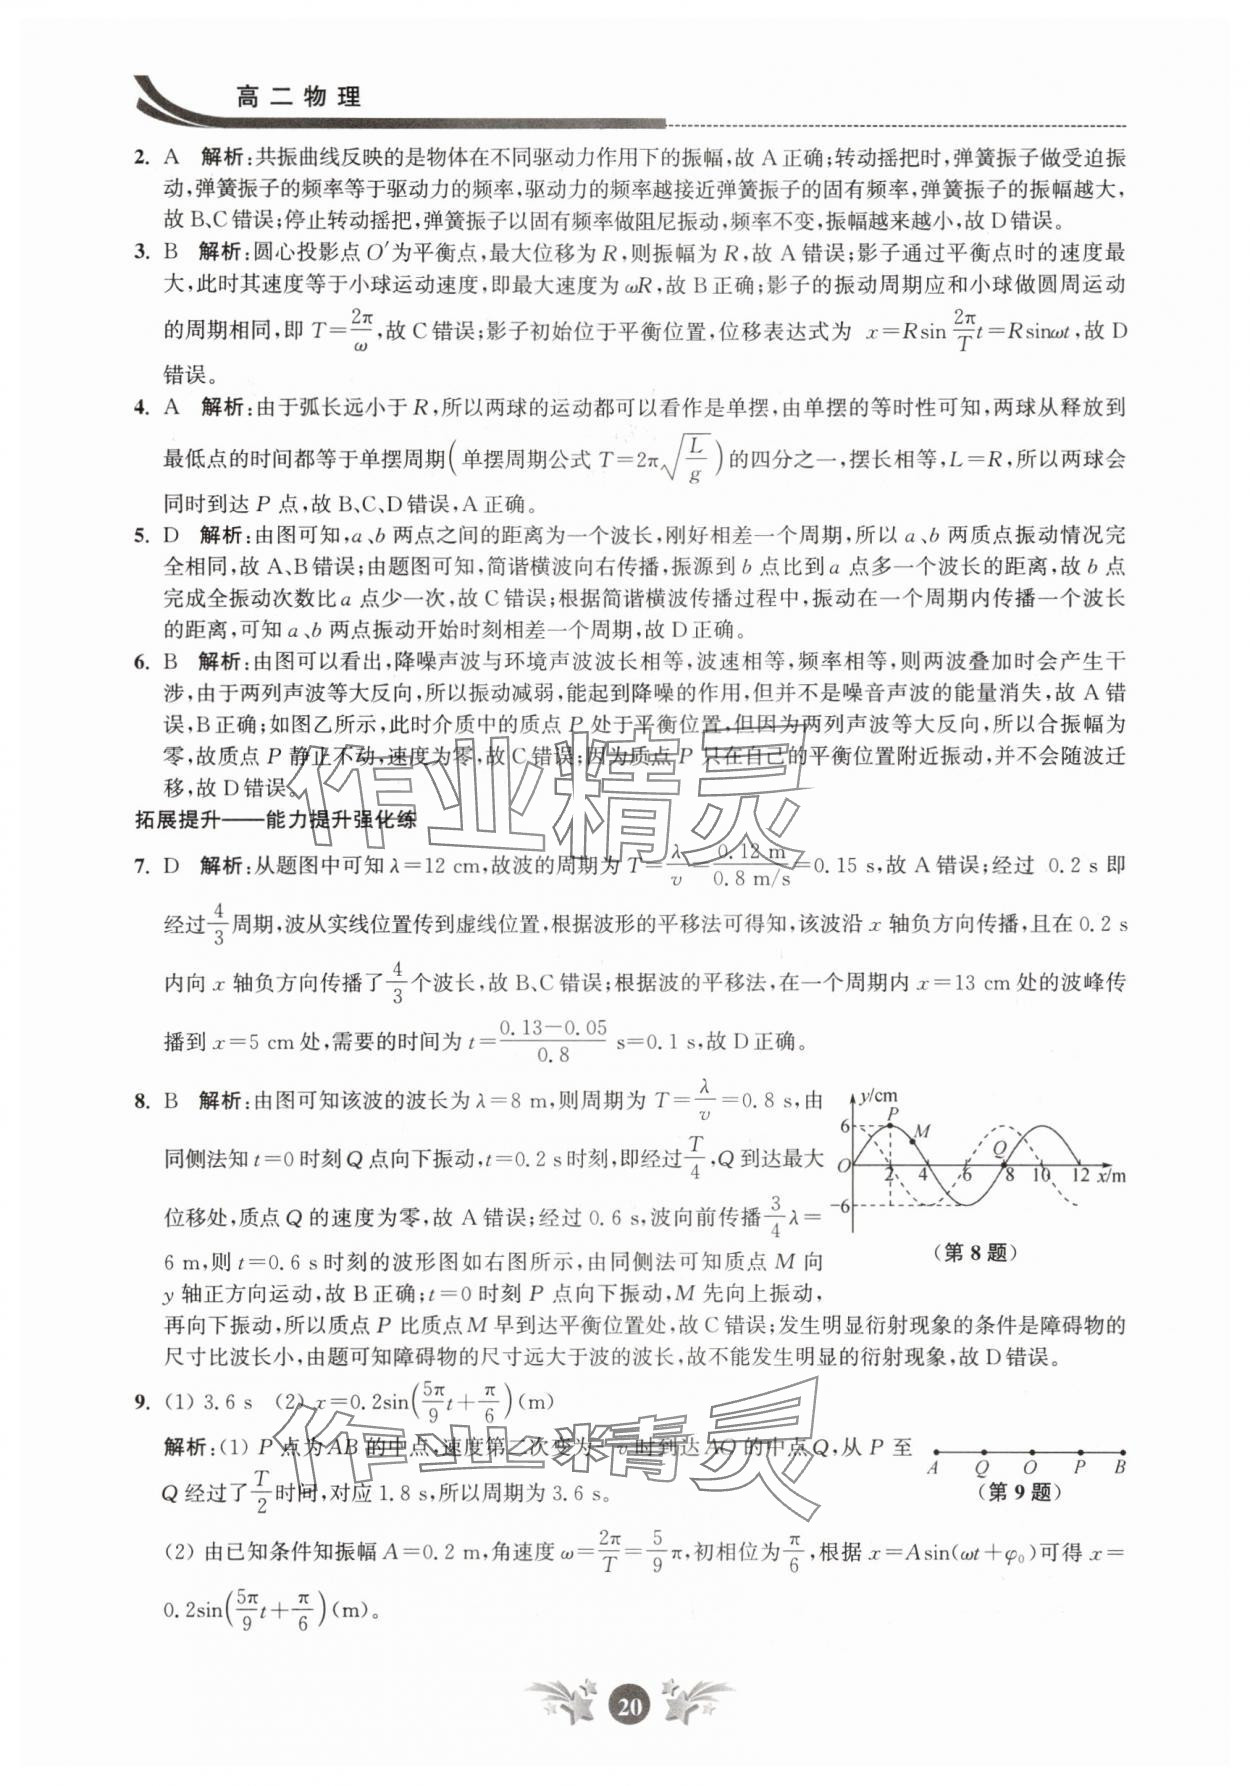 高二物理
2. A 解析:共振曲线反映的是物体在不同驱动力作用下的振幅,故 A 正确;转动摇把时,弹簧振子做受迫振
动,弹簧振子的频率等于驱动力的频率,驱动力的频率越接近弹簧振子的固有频率,弹簧振子的振幅越大,
故 B、C 错误;停止转动摇把,弹簧振子以固有频率做阻尼振动,频率不变,振幅越来越小,故 D 错误。
3. B 解析:圆心投影点 O′为平衡点,最大位移为 R,则振幅为 R,故 A 错误;影子通过平衡点时的速度最
大,此时其速度等于小球运动速度,即最大速度为 ωR,故 B 正确;影子的振动周期应和小球做圆周运动
的周期相同,即 T=2π/ω,故 C 错误;影子初始位于平衡位置,位移表达式为 x=Rsin 2π/T t=Rsinωt,故 D
错误。
4. A 解析:由于弧长远小于 R,所以两球的运动都可以看作是单摆,由单摆的等时性可知,两球从释放到
最低点的时间都等于单摆周期(单摆周期公式 T=2π√(L/g))的四分之一,摆长相等,L=R,所以两球会
同时到达 P 点,故 B、C、D 错误,A 正确。
5. D 解析:由图可知,a、b 两点之间的距离为一个波长,刚好相差一个周期,所以 a、b 两质点振动情况完
全相同,故 A、B 错误;由题图可知,简谐横波向右传播,振源到 b 点比到 a 点多一个波长的距离,故 b 点
完成全振动次数比 a 点少一次,故 C 错误;根据简谐横波传播过程中,振动在一个周期内传播一个波长
的距离,可知 a、b 两点振动开始时刻相差一个周期,故 D 正确。
6. B 解析:由图可以看出,降噪声波与环境声波波长相等,波速相等,频率相等,则两波叠加时会产生干
涉,由于两列声波等大反向,所以振动减弱,能起到降噪的作用,但并不是噪音声波的能量消失,故 A 错
误,B 正确;如图乙所示,此时介质中的质点 P 处于平衡位置,但因为两列声波等大反向,所以合振幅为
零,故质点 P 静止不动,速度为零,故 C 错误;因为质点 P 只在自己的平衡位置附近振动,并不会随波迁
移,故 D 错误。
拓展提升——能力提升强化练
7. D 解析:从题图中可知 λ=12 cm,故波的周期为 T=λ/v=0.12 m/0.8 m/s=0.15 s,故 A 错误;经过 0.2 s 即
经过4/3周期,波从实线位置传到虚线位置,根据波形的平移法可得知,该波沿 x 轴负方向传播,且在 0.2 s
内向 x 轴负方向传播了4/3个波长,故 B、C 错误;根据波的平移法,在一个周期内 x=13 cm 处的波峰传
播到 x=5 cm 处,需要的时间为 t=(0.13-0.05)/0.8 s=0.1 s,故 D 正确。
8. B 解析:由图可知该波的波长为 λ=8 m,则周期为 T=λ/v=0.8 s,由
同侧法知 t=0 时刻 Q 点向下振动,t=0.2 s 时刻,即经过T/4,Q 到达最大
位移处,质点 Q 的速度为零,故 A 错误;经过 0.6 s,波向前传播3/4λ=
6 m,则 t=0.6 s 时刻的波形图如右图所示,由同侧法可知质点 M 向
y 轴正方向运动,故 B 正确;t=0 时刻 P 点向下振动,M 先向上振动,
再向下振动,所以质点 P 比质点 M 早到达平衡位置处,故 C 错误;发生明显衍射现象的条件是障碍物的
尺寸比波长小,由题可知障碍物的尺寸远大于波的波长,故不能发生明显的衍射现象,故 D 错误。
y/cm
6 P M
O 2 4 6 Q 8 10 12 x/m
-6
(第 8 题)
9. (1) 3.6 s (2) x=0.2sin(5π/9 t+π/6)(m)
解析:(1) P 点为 AB 的中点,速度第二次变为-v 时到达 AO 的中点 Q,从 P 至
Q 经过了T/2时间,对应 1.8 s,所以周期为 3.6 s。
A Q O P B
(第 9 题)
(2) 由已知条件知振幅 A=0.2 m,角速度 ω=2π/T=5/9π,初相位为π/6,根据 x=Asin(ωt+φ₀)可得 x=
0.2sin(5π/9 t+π/6)(m)。
20
作业精灵
作业精灵